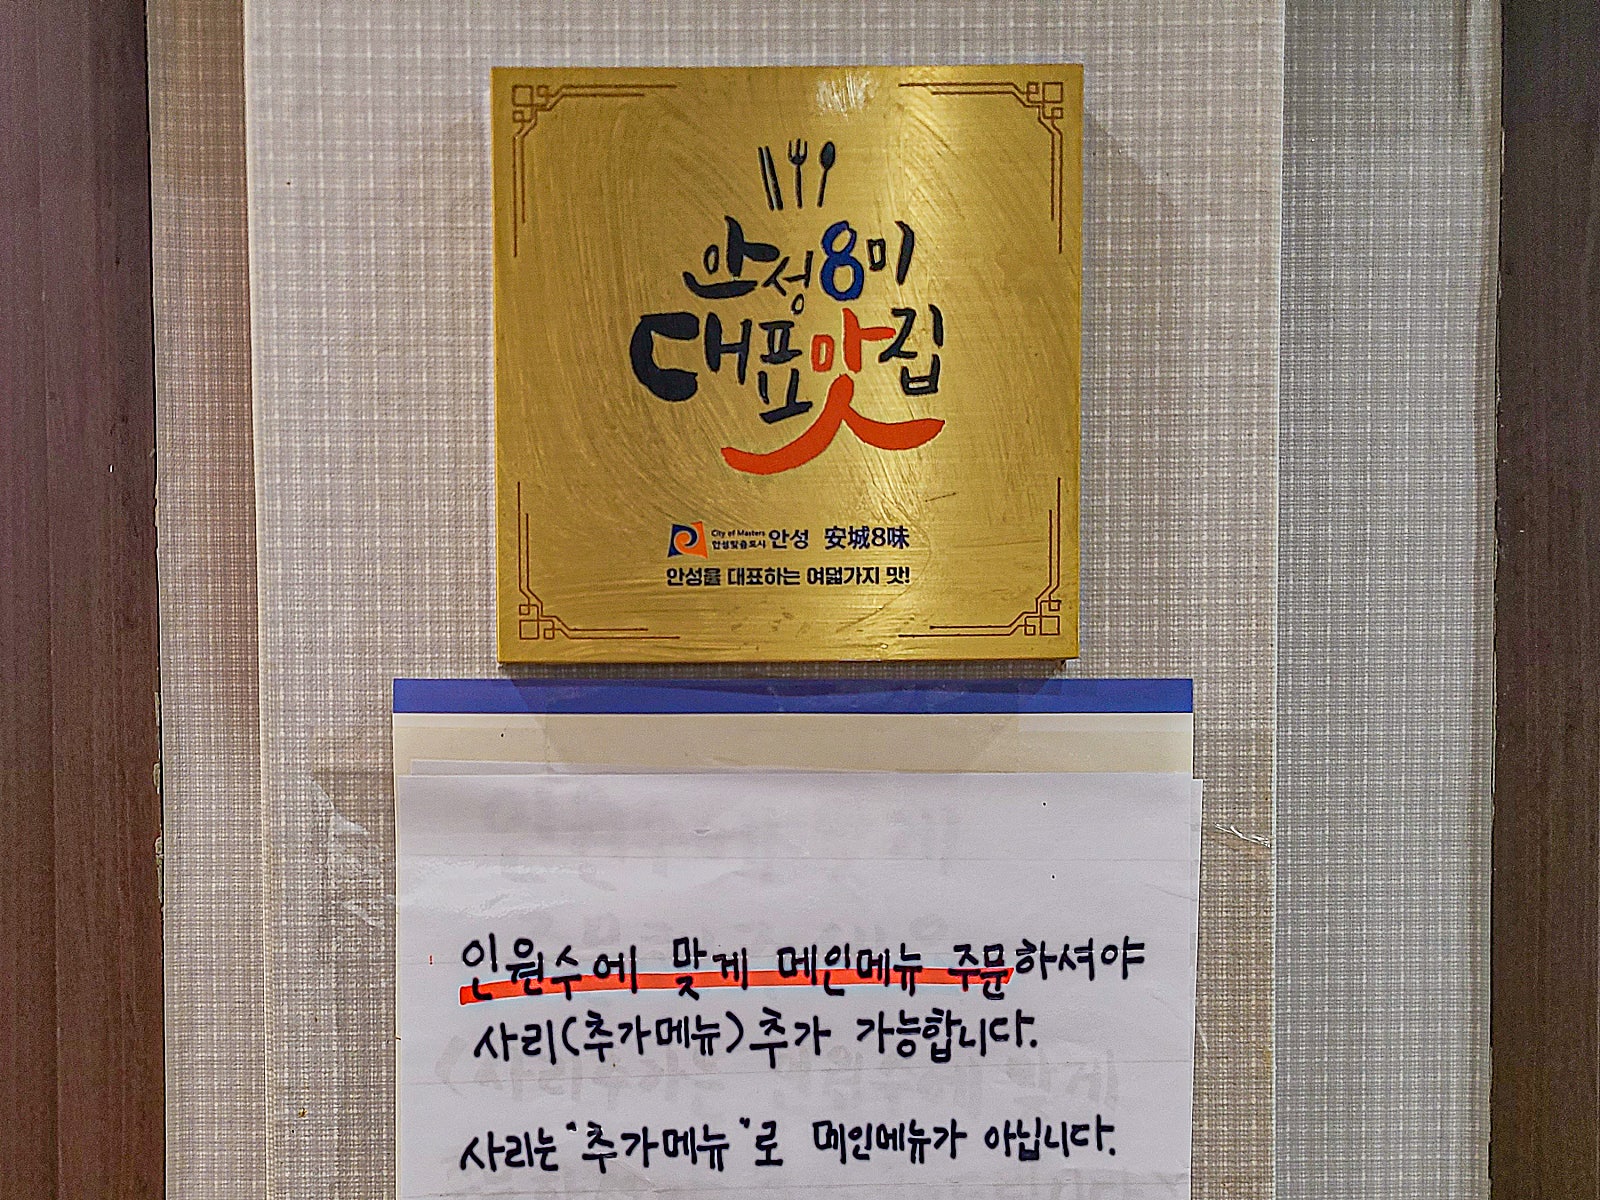 안성8미
대표맛집
City of Masters
안성맞춤도시 안성 安城8味
안성을 대표하는 여덟가지 맛!
인원수에 맞게 메인메뉴 주문하셔야
사리(추가메뉴)추가 가능합니다.
사리는 "추가메뉴"로 메인메뉴가 아닙니다.